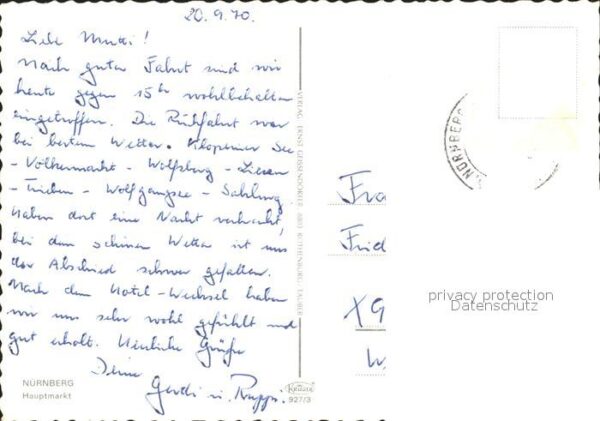 20.9.70.
Liebe Mutti!
Nach guter Fahrt sind wir
heute gegen 15 Uhr wohlbehalten
eingetroffen. Die Rückfahrt war
bei bestem Wetter. Klopeiner See
- Völkermarkt - Wolfsberg - Liezen
- - Wolfgangsee - Salzburg.
Haben dort eine Nacht verbracht,
bei dem schönen Wetter ist uns
der Abschied schwer gefallen.
Nach dem Hotel-Wechsel haben
wir uns sehr wohl gefühlt und
gut erholt. Herzliche Grüße
Deine
Gerdi u.
NÜRNBERG
Hauptmarkt
Krüger
927/3
VERLAG ERNST GEISSENDÖRFER 8803 ROTHENBURG/TAUBER
NÜRNBERG
Fra
Frid
X9
W
privacy protection
Datenschutz